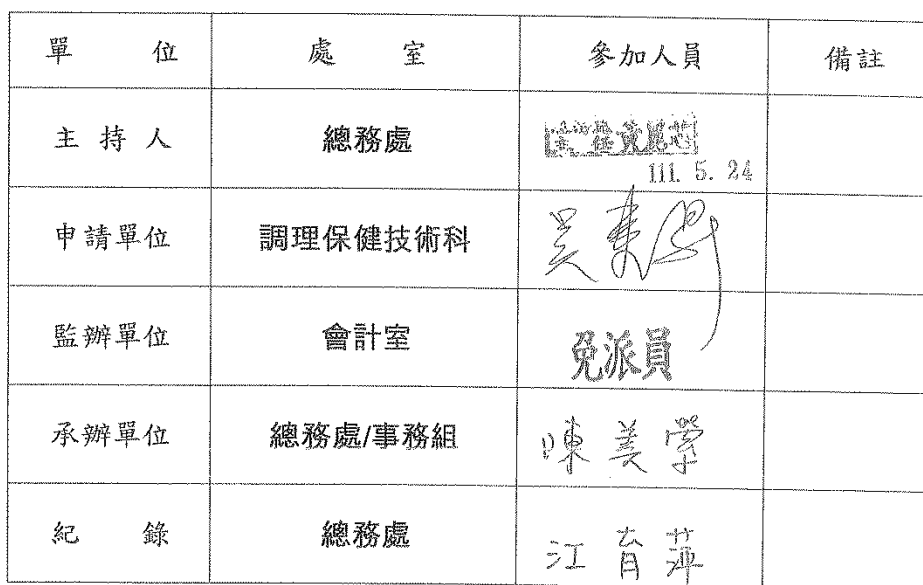 單 位 處 室 參加人員 備註
主 持 人 總務處
111. 5. 24
申請單位 調理保健技術科 吳
監辦單位 會計室 免派員
承辦單位 總務處/事務組 陳美學
紀 錄 總務處 江育萍